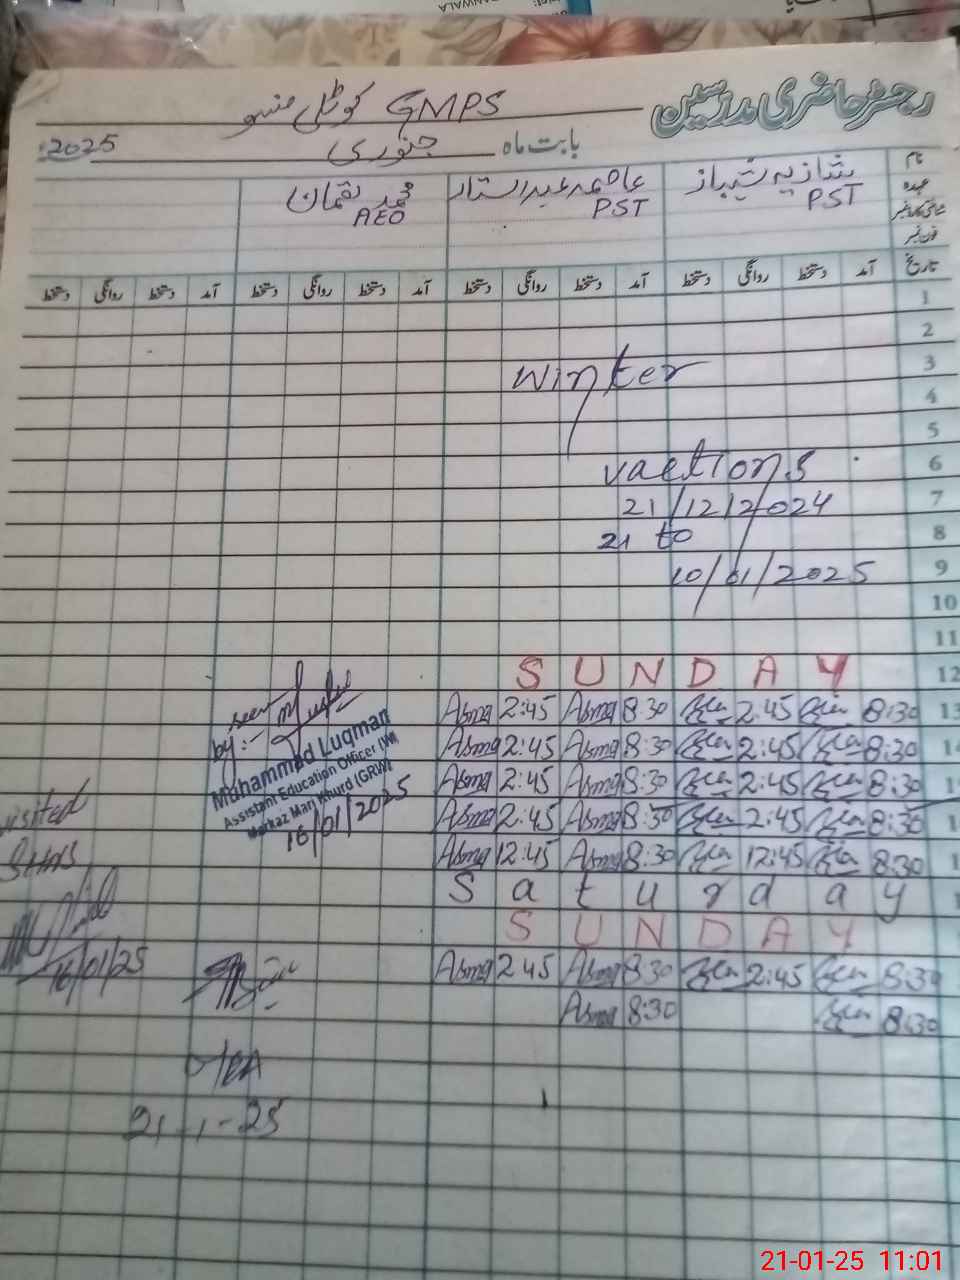 رجسٹر حاضری مدرسین
GMPS کوٹلی منسو
بابت ماہ جنوری 2025
نام شازیہ شہباز عاصمہ عبدالستار محمد لقمان
عہدہ PST PST AEO
شناختی کارڈ نمبر
فون نمبر
تاریخ آمد دستخط روانگی دستخط آمد دستخط روانگی دستخط آمد دستخط روانگی دستخط آمد دستخط روانگی دستخط
1
2
3
winter
4
5
6
vactions
7
21/12/2024
8
21 to
9
10/01/2025
10
11
SUNDAY 12
Asma 2:45 Asma 8:30 2:45 8:30 13
Asma 2:45 Asma 8:30 2:45 8:30 14
Asma 2:45 Asma 8:30 2:45 8:30
Asma 2:45 Asma 8:30 2:45 8:30
Asma 12:45 Asma 8:30 12:45 8:30
Saturday
SUNDAY
Asma 2:45 Asma 8:30 2:45 8:30
Asma 8:30 8:30
seen
by:-
Muhammad Luqman
Assistant Education Officer (W)
Markaz Mari Khurd (GRW)
16/01/2025
visited
16/01/25
21-1-25
21-01-25 11:01